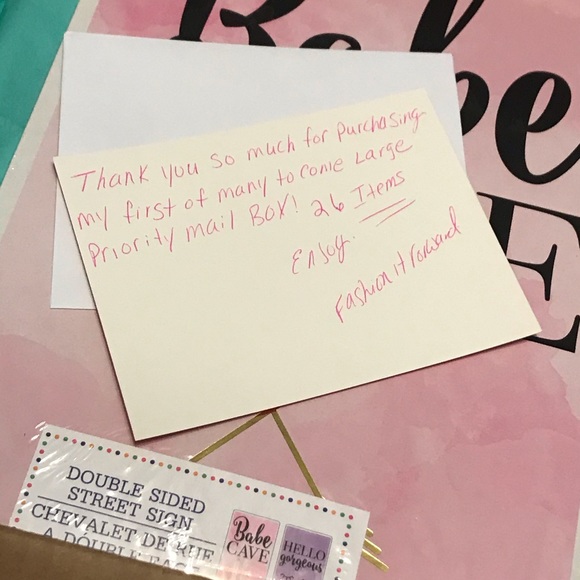 Babe
E
Thank you so much for purchasing
my first of many to come Large
Priority mail Box! 26 Items
Enjoy.
Fashion it Forward
DOUBLE SIDED
STREET SIGN
CHEVALET DE RUE
À DOUBLE FACE
Babe
CAVE
HELLO
gorgeous